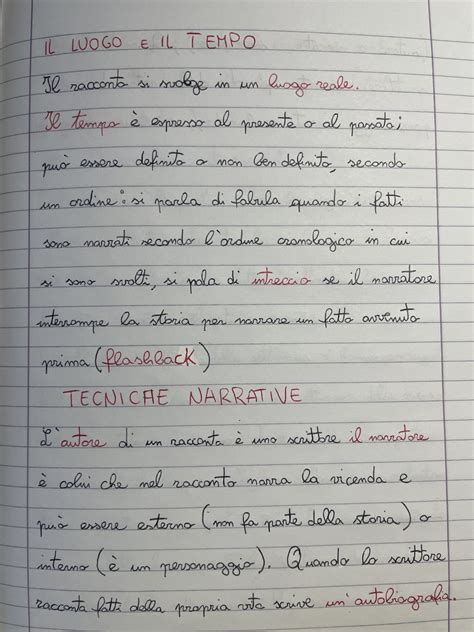 IL LUOGO E IL TEMPO
Il racconto si svolge in un luogo reale.
Il tempo è espresso al presente o al passato;
può essere definito o non ben definito, secondo
un ordine: si parla di fabula quando i fatti
sono narrati secondo l'ordine cronologico in cui
si sono svolti, si pala di intreccio se il narratore
interrompe la storia per narrare un fatto avvenuto
prima (flashback)
TECNICHE NARRATIVE
L'autore di un racconto è uno scrittore il narratore
è colui che nel racconto narra la vicenda e
può essere esterno (non fa parte della storia) o
interno (è un personaggio). Quando lo scrittore
racconta fatti della propria vita scrive un'autobiografia.